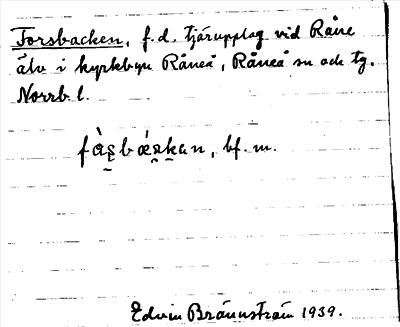 Forsbacken, f. d. tjärupplag vid Råne
älv i kyrkbyn Råneå, Råneå sn och tg.
Norrb. l.
bf. m.
Edvin Brännström 1939.